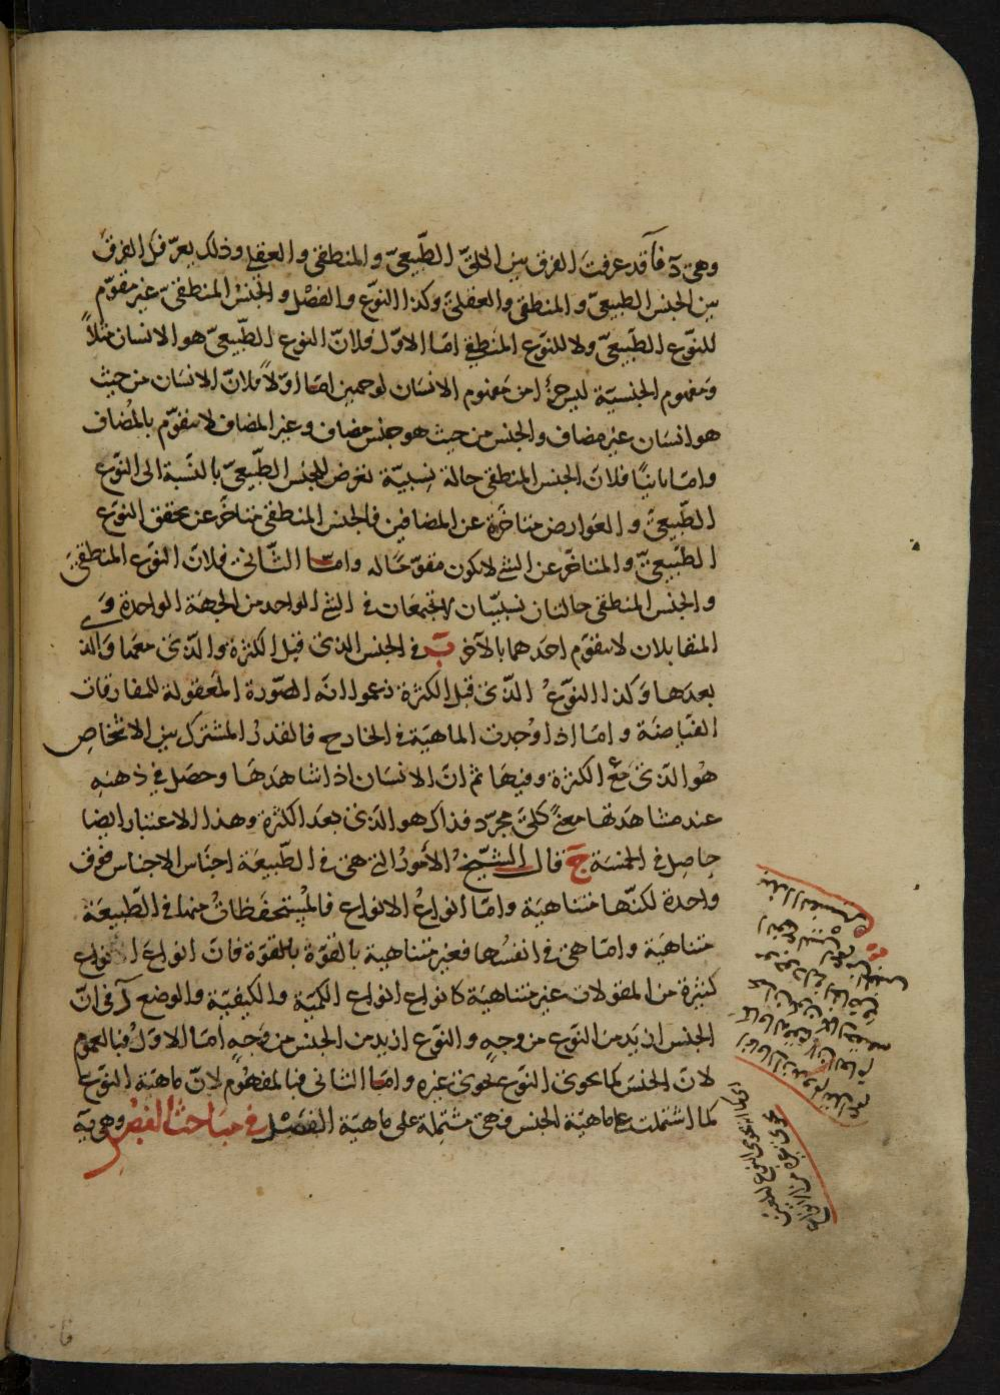 وهي د فآ قد عرفت الفرق بين الكلى الطّبيعىّ والمنطقى والعقلى وذلك يعرّفك الفرق
بين الجنس الطبيعىّ والمنطقى والعقلىّ وكذا النوع والفصل والجنس المنطقىّ غير مقوّم
للنوع الطّبيعىّ ولا للنوع المنطقى امّا الاوّل فلانّ النوع الطّبيعىّ هو الانسان مثلاً
ومفهوم الجنسيّة ليس جزأ من مفهوم الانسان لوجهين امّا اوّلاً فلانّ الانسان من حيث
هو انسان غير مضاف والجنس من حيث هو جنس مضاف وغير المضاف لا يتقوّم بالمُضاف
وامّا ثانيًا فلانّ الجنس المنطقى حالة نسبيّة تعرض للجنس الطّبيعىّ بالنّسبة الى النّوع
الطّبيعىّ والعوارض متأخّرة عن المضافين فالجنس المنطقى متأخّر عن تحقق النوع
الطّبيعىّ والمتأخّر عن الشئ لا يكون مقوّمًا له وامّا الثّانى فلانّ النوع المنطقىّ
والجنس المنطقى حالتان نسبيّتان لا تجتمعان فى الشئ الواحد من الجهة الواحدة و
المتقابلان لا يتقوّم احدهما بالآخر بّ فى الجنس الذى قبل الكثرة والّذى معها والّذى
بعدها وكذا النّوع الّذى قبل الكثرة زعموا انّه الصّورة المعقولة للمفارقات
الفيّاضة وامّا اذا وُجدت الماهيّة فى الخارج فالقدر المشترك بين الاشخاص
هو الّذى مع الكثرة وفيها ثم انّ الانسان اذا شاهدها وحصل فى ذهنه
عند مشاهدتها معنىً كلىّ مجرّد فذاك هو الّذى بعد الكثرة وهذا الاعتبار ايضا
حاصل فى الخمسة جَ قال الشّيخ الأمورُ التى هى فى الطّبيعة اجناس الاجناس فوق
واحدة لكنّها متناهية وامّا انواعُ الانواع فالمُستحفظاتُ منها فى الطّبيعة
متناهية وامّا هى فى انفسُها فغير متناهية بالقوّة بالقوّة فانّ انواعَ الانواع
كثيرة من المقولات غير متناهية كانواع انواع الكميّة والكيفيّة والوضع دَ فى انّ
الجنس ازيد من النّوع من وجهٍ والنوع ازيد من الجنس من وجهٍ امّا الاوّل فبالعموم
لانّ الجنس كما يحوى النوع يحوى غيره وامّا الثانى فبالمفهوم لانّ ماهيّة النوع
كما اشتملت على ماهيّة الجنس فهى مشتملة على ماهيّة الفصل فى مباحث الفصل وهى يَه
اى كما انه يحوى النوع
يحوى غيره من الانواع